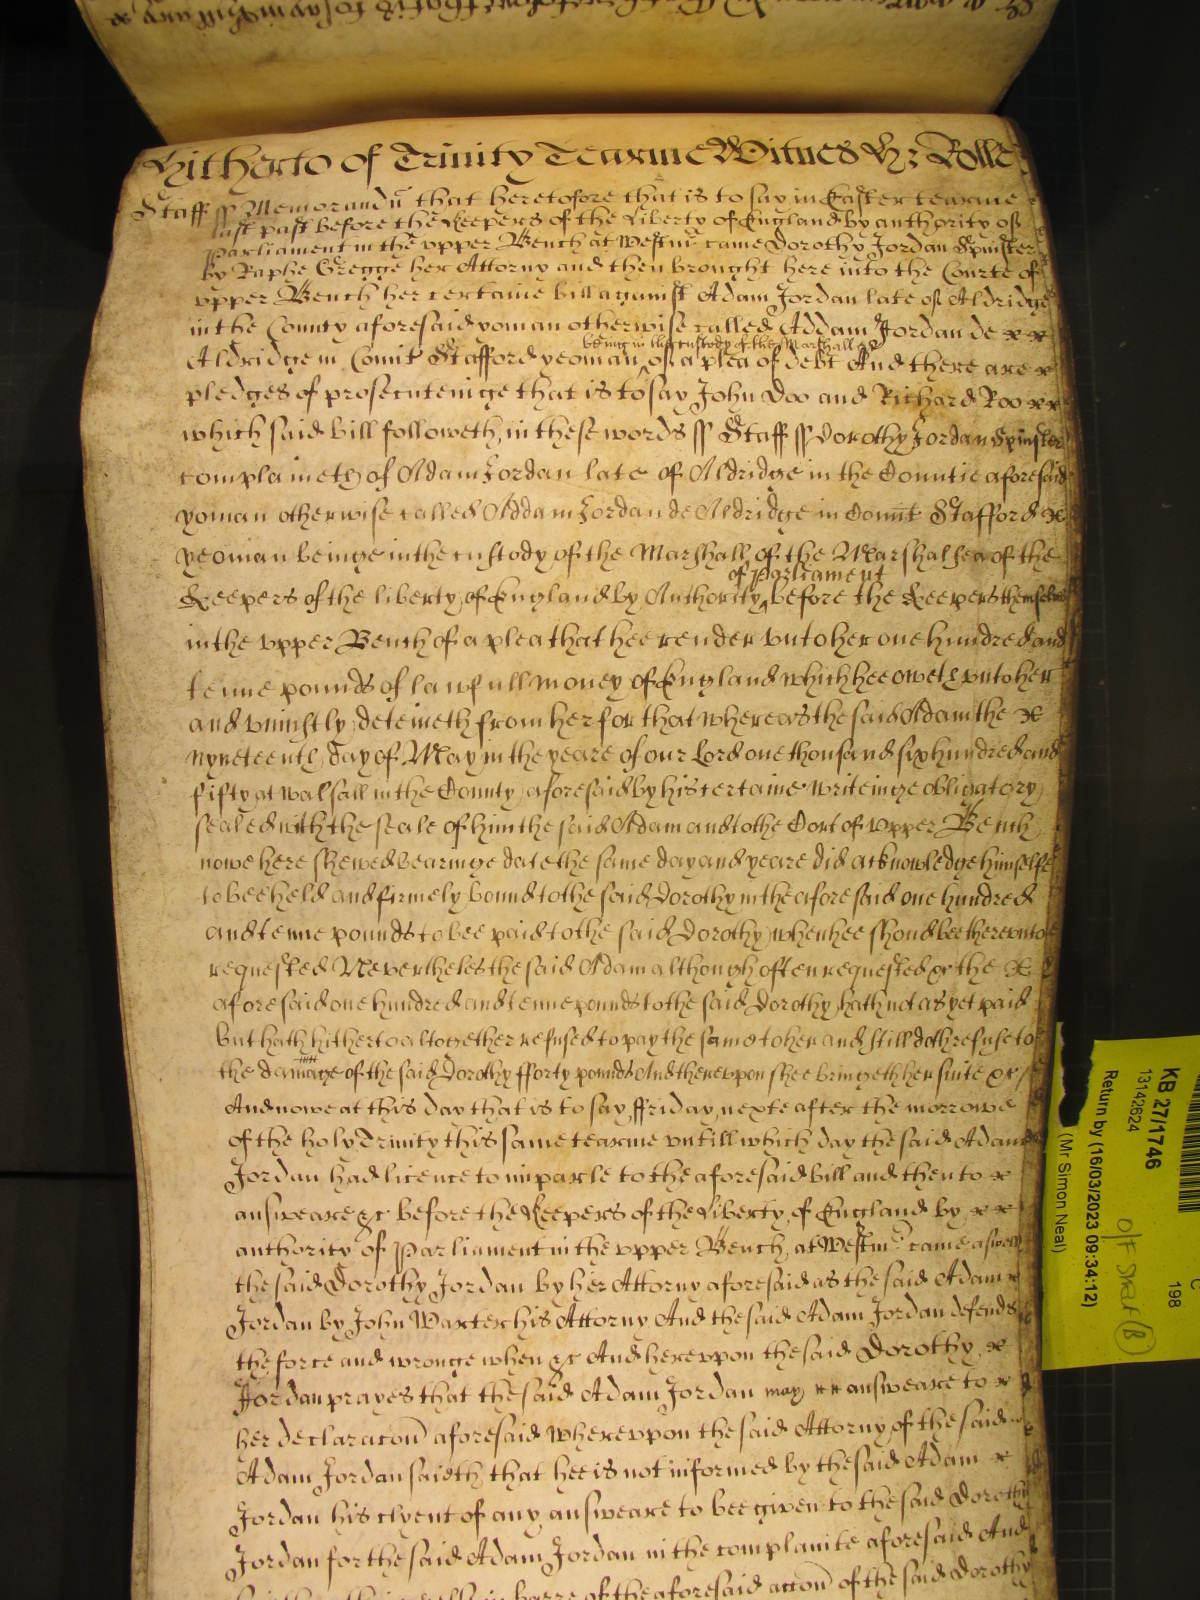 Hitherto of Trinity Tearme Witnes H: Rolle
Staff ss Memorandu that heretofore that is to say in Easter tearme
last past before the Keepers of the Liberty of England by authority of
Parliament in the vpper Bench at Westmr came Dorothy Jordan Spinster
by Raphe Gregge her Attorny and then brought here into the Courte of
vpper Bench her certaine bill against Adam Jordan late of Aldridge
in the County aforesaid yoman otherwise called Addam Jordan de
being in the custody of the Marshall &c
Aldridge in Comit Stafford yeoman of a plea of debt And there are
pledges of prosecuteinge that is to say John Doo and Richard Roo
which said bill followeth in these words ss Staff ss Dorothy Jordan Spinster
complaineth of Adam Jordan late of Aldridge in the Countie aforesaid
yoman otherwise called Addam Jordan de Aldridge in Comit Stafford
yeoman beinge in the custody of the Marshall of the Marshalsea of the
of Parliament
Keepers of the liberty of England by Authority before the Keepers themselves
in the vpper Bench of a plea that hee render vnto her one hundred and
tenne pounds of lawfull money of England which hee oweth vnto her
and vniustly deteineth from her for that whereas the said Adam the
nyneteenth day of May in the yeare of our Lord one thousand six hundred and
fifty at Walsall in the County aforesaid by his certaine writeinge obligatory
sealed with the seale of him the said Adam and to the Cort of vpper Bench
nowe here shewed bearinge date the same day and yeare did acknowledge himselfe
to bee held and firmely bound to the said Dorothy in the aforesaid one hundred
and tenne pounds to bee paid to the said Dorothy when hee shoud bee therevnto
requested Neverthelesthe said Adam although often requested &c the
aforesaid one hundred and tenne pounds to the said Dorothy hath not as yet paid
but hath hitherto altogether refused to pay the same to her and still doth refuse to
the damage of the said Dorothy fforty pounds And therevpon shee bringeth her suite &c
And nowe at this day that is to say ffriday nexte after the morrowe
of the holy Trinity this same tearme vntill which day the said Adam
Jordan had licence to imparle to the aforesaid bill and then to
answeare &c before the Keepers of the Liberty of England by
authority of Parliament in the vpper Bench at Westmr came aswell
the said Dorothy Jordan by her Attorny aforesaid as the said Adam
Jordan by John Warter his Attorny And the said Adam Jordan defends
the force and wronge when &c And herevpon the said Dorothy
Jordan prayes that the said Adam Jordan may answeare to
her declaracon aforesaid wherevpon the said Attorny of the said
Adam Jordan saieth that hee is not informed by the said Adam
Jordan his clyent of any answeare to bee given to the said Dorothy
Jordan for the said Adam Jordan in the complainte aforesaid And
in barre of the aforesaid accon of the said Dorothy
KB 27/1746
13142624
Return by (16/03/2023 09:34:12)
(Mr Simon Neal)
C
198